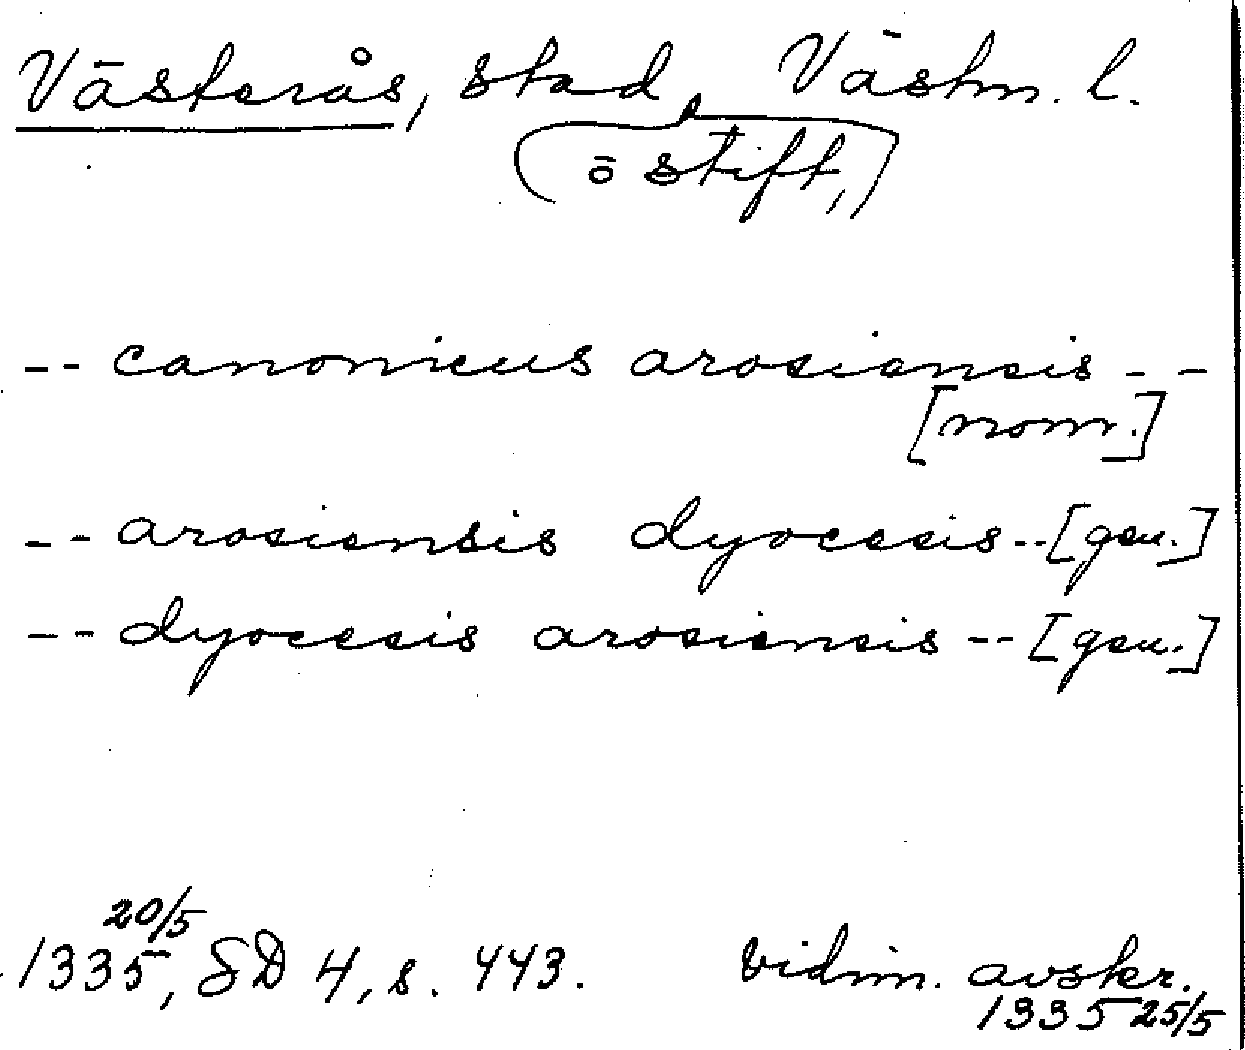 Västerås, stad, Västm. l.
(ō stift,)
-- canonicus arosiensis --
[nom.]
-- arosiensis dyocesis -- [gen.]
-- dyocesis arosiensis -- [gen.]
1335 20/5, SD 4, s. 443. Vidim. avskr.
1335 25/5